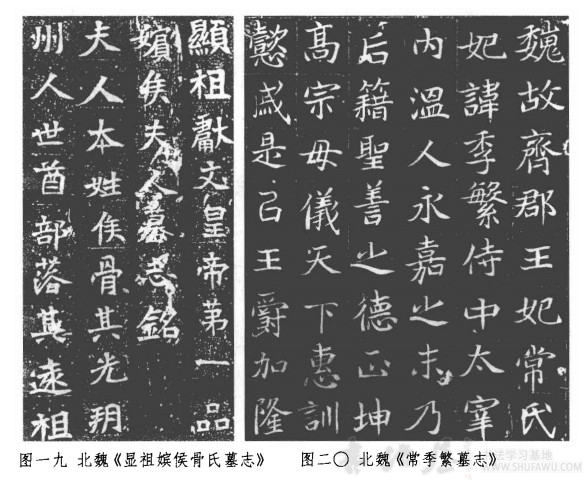 顯祖獻文皇帝第一品
嬪侯夫人墓志銘
夫人本姓侯骨其先朔
州人世酋部落其遠祖
图一九 北魏《显祖嫔侯骨氏墓志》
魏故齊郡王妃常氏
妃諱季繁侍中太宰
內溫人永嘉之末乃
后籍聖善之德正坤
高宗毋儀天下惠訓
懿戚是以王爵加隆
图二〇 北魏《常季繁墓志》
法学习基地
WWW.SHUFAWU.COM